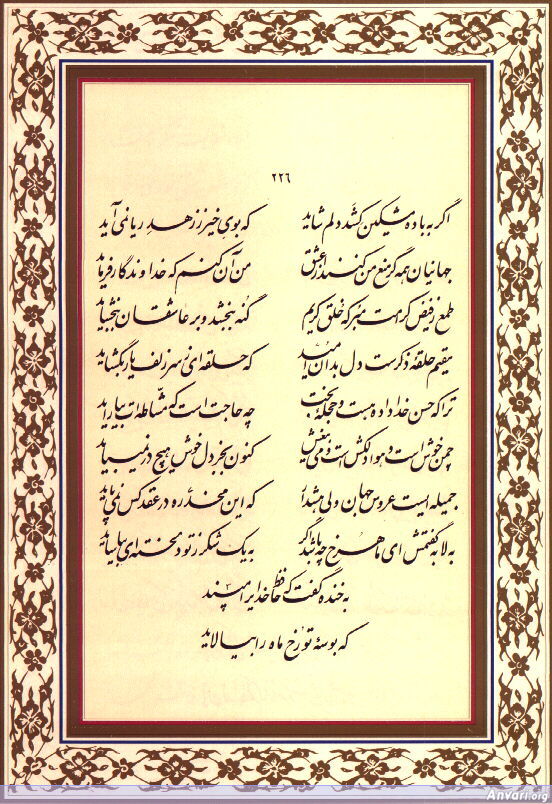 ۲۲۶
اگر به باده مشکین کشد دلم شاید که بوی خیر ز زهد ریا نمی آید
جهانیان همه گر منع من کنند از عشق من آن کنم که خداوندگار فرماید
طمع ز فیض کرامت مبر که خلق کریم گنه ببخشد و بر عاشقان ببخشاید
مقیم حلقه ذکرست دل بدان امید که حلقه ای ز سر زلف یار بگشاید
ترا که حسن خداداده هست و حجله بخت چه حاجت است که مشاطه ات بیاراید
چمن خوش است و هوا دلکش است و می بیغش کنون بجز دل خوش هیچ در نمی باید
جمیله ایست عروس جهان ولی هشدار که این مخدره در عقد کس نمی آید
به لابه گفتمش ای ماهرخ چه باشد اگر به یک شکر ز تو دلخسته ای بیاساید
به خنده گفت که حافظ خدایرا مپسند
که بوسه تو رخ ماه را بیالاید
Anvari.org